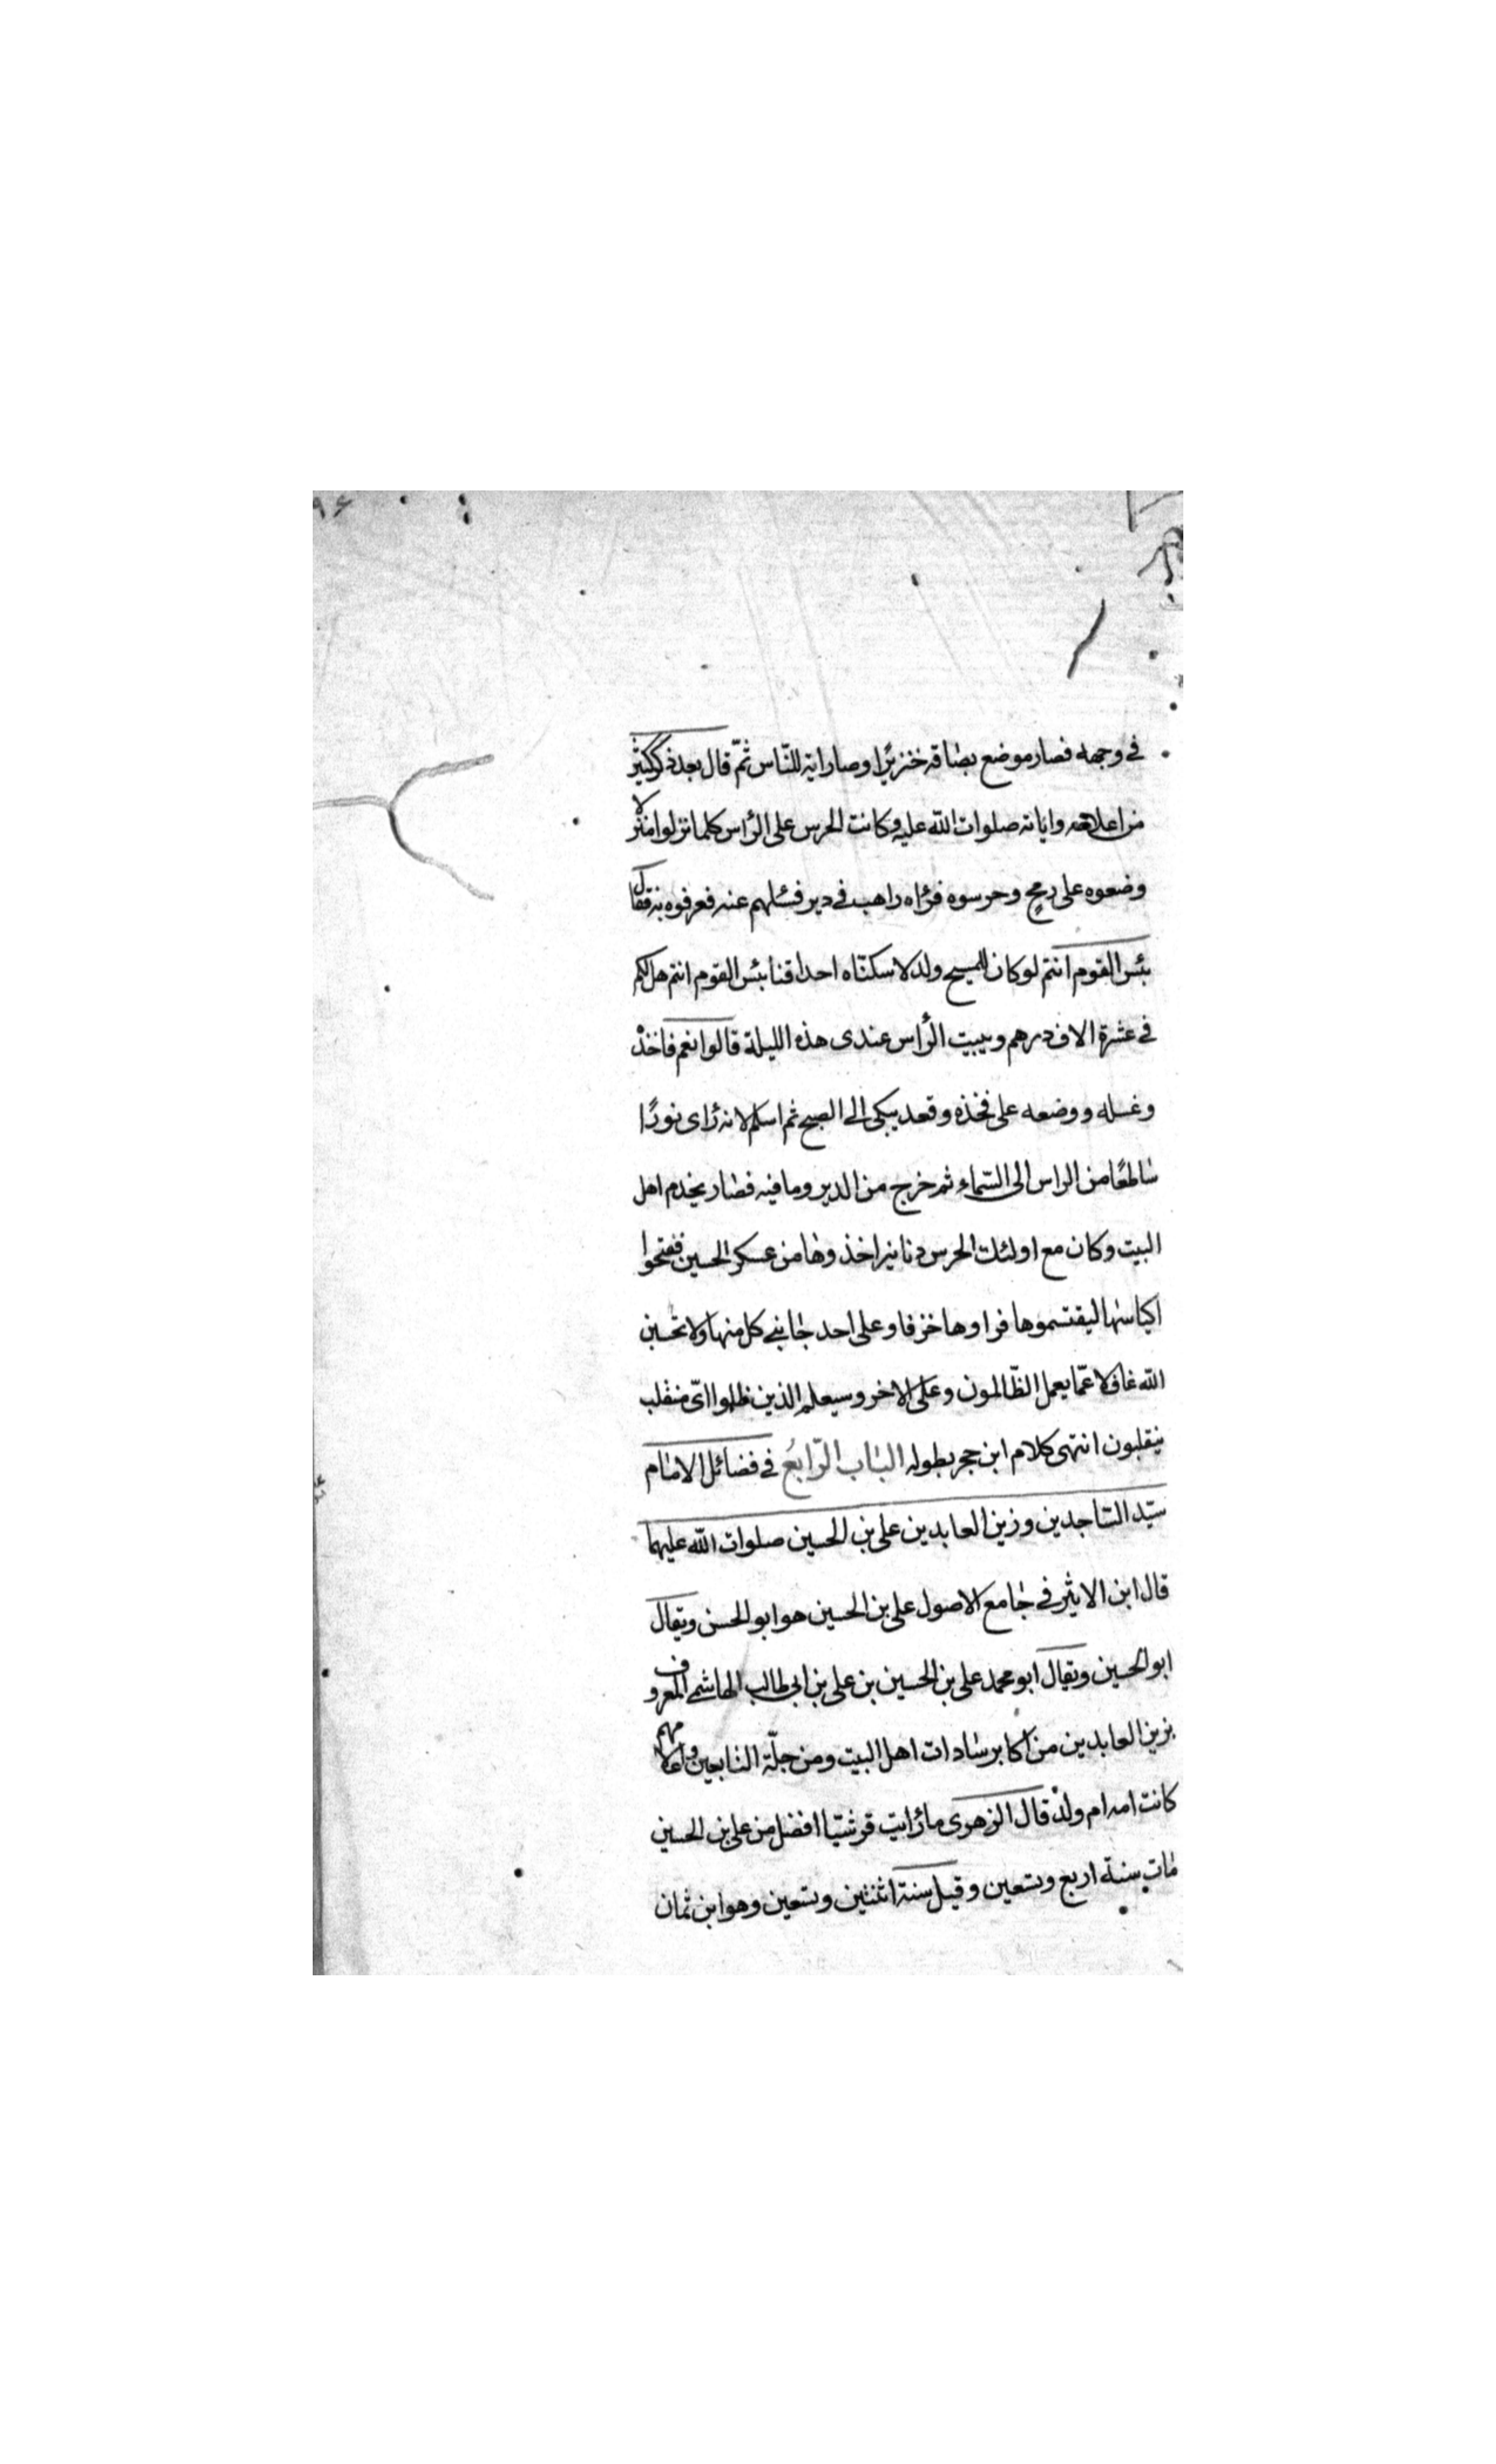 ٩٤
في وجهه فصار موضع بصاقه خنزيرًا وصار اية للنّاس ثمّ قال بعد ذكر كثير
من اعلامه واياته صلوات الله عليه وكانت الحرس على الرّاس كلما نزلوا منزلا
وضعوه على رمح وحرسوه فرٰاه راهب في دير فسٔلهم عنه فعرفوه به فقال
بئس القوم انتم لو كان للمسيح ولد لاسكنّاه احداقنا بئس القوم انتم هل لكم
في عشرة الاف درهم ويبيت الرٔاس عندى هذه الليلة قالوا نعم فاخذه
وغسله ووضعه على فخذه وقعد يبكى الى الصبح ثم اسلم لانه رٔاى نورًا
ساطعًا من الراس الى السّماء ثم خرج من الدير وما فيه فصار يخدم اهل
البيت وكان مع اولئك الحرس دنانير اخذوها من عسكر الحسين ففتحوا
اكياسها ليقتسموها فراوها خزفا وعلى احد جانبي كل منها ولا تحسبن
الله غافلا عمّا يعمل الظّالمون وعلى الاخر وسيعلم الذين ظلموا اىّ منقلب
ينقلبون انتهى كلام ابن حجر بطوله الباب الرّابع في فضائل الامام
سيّد السّاجدين وزين العابدين على بن الحسين صلوات الله عليهما
قال ابن الاثير في جامع الاصول على بن الحسين هو ابو الحسن ويقال
ابو الحسين ويقال ابو محمد على بن الحسين بن على بن ابى طالب الهاشمي المعروف
بزين العابدين من اكابر سادات اهل البيت ومن جلّة التابعين واعلامهم
كانت امه ام ولد قال الزهرى ما رٔايت قرشيّا افضل من على بن الحسين
مات سنة اربع وتسعين وقيل سنة اثنتين وتسعين وهو ابن ثمان